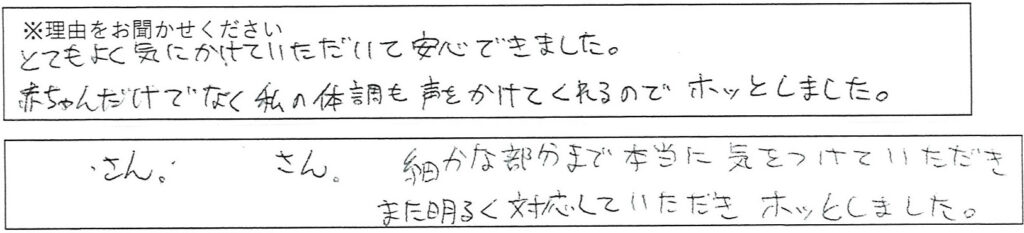 ※理由をお聞かせください
とてもよく気にかけていただいて安心できました。
赤ちゃんだけでなく私の体調も声をかけてくれるのでホッとしました。
さん。 さん。 細かな部分まで本当に気をつけていただき
また明るく対応していただき ホッとしました。